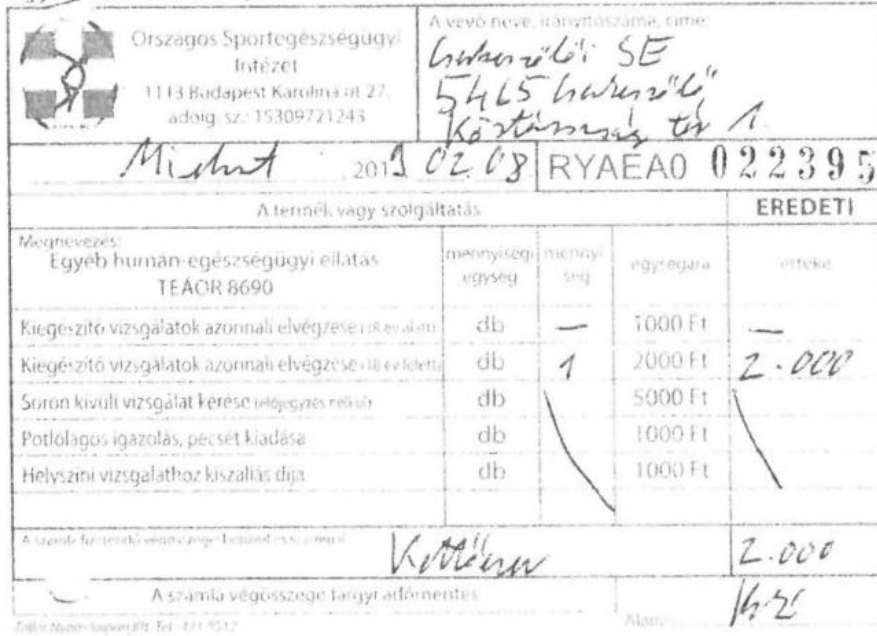 Országos Sportegészségügyi
Intézet
1113 Budapest Karolina út 27.
adóig. sz.: 15309721243
A vevő neve, irányítószáma, címe:
Cserkeszőlői SE
5465 Cserkeszőlő
Köztársaság tér 1.
2019 02.08
RYAEA0 022395
A termék vagy szolgáltatás
EREDETI
Megnevezés:
Egyéb humán-egészségügyi ellátás
TEÁOR 8690
mennyiségi egység
mennyi ség
egységára
értéke
Kiegészítő vizsgálatok azonnali elvégzése (18 év alatt) db — 1000 Ft —
Kiegészítő vizsgálatok azonnali elvégzése (18 év felett) db 1 2000 Ft 2.000
Soron kívüli vizsgálat kérése (előjegyzés nélkül) db 5000 Ft
Pótlólagos igazolás, pecsét kiadása db 1000 Ft
Helyszíni vizsgálathoz kiszállás díja db 1000 Ft
A számla fizetendő végösszege betűvel és számmal
Kettőezer 2.000
A számla végösszege tárgyi adómentes